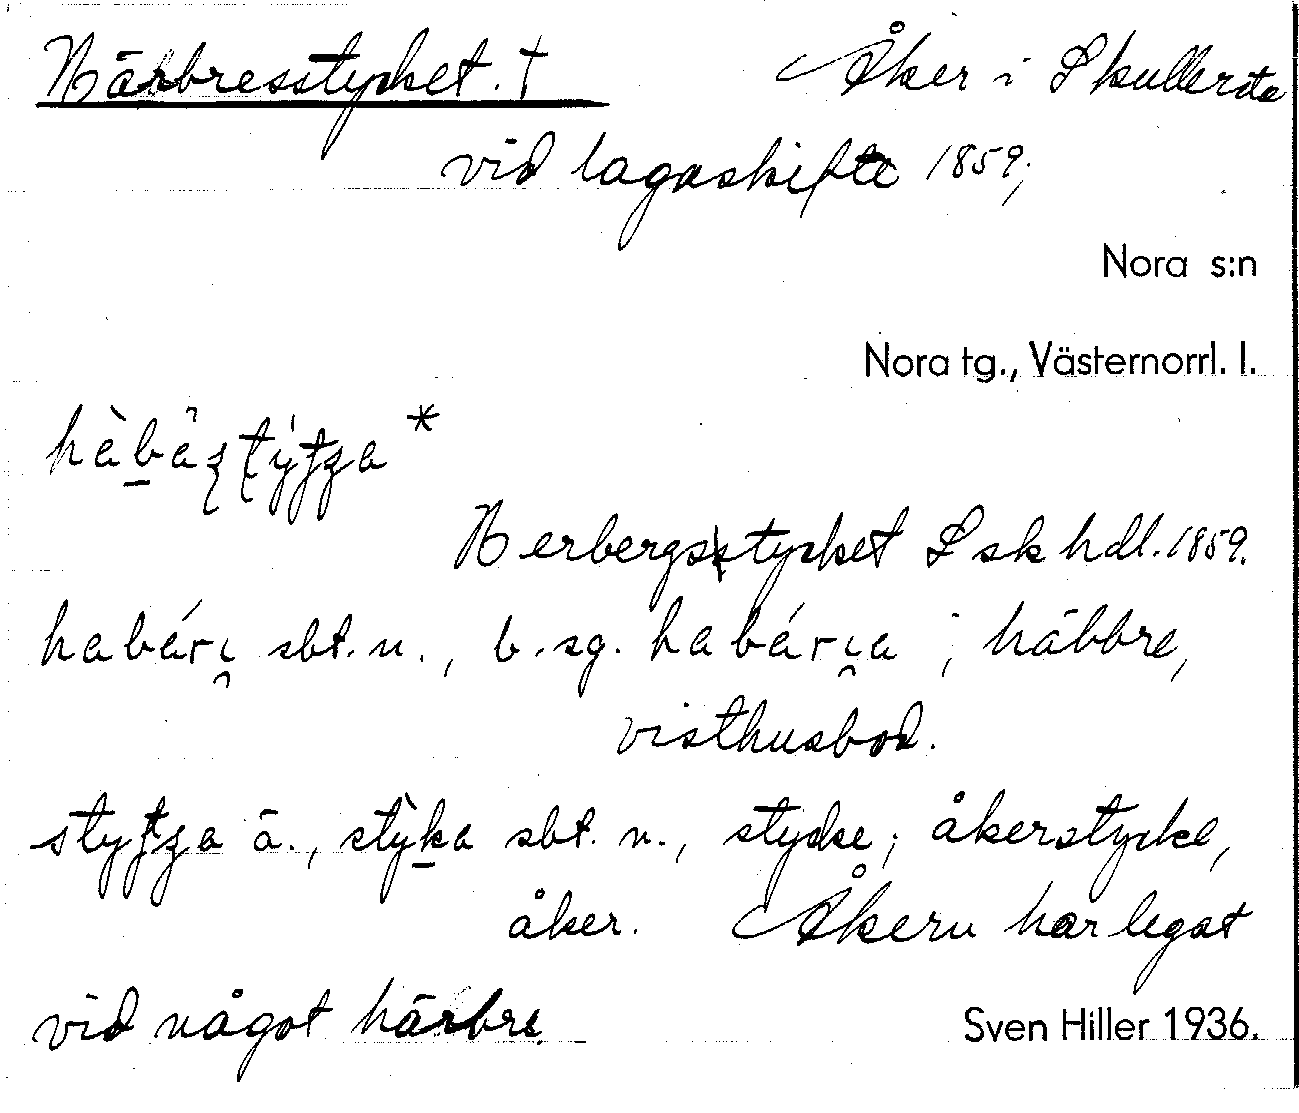 Härbresstycket. †
Åker i Skullersta
vid lagaskifte 1859;
Nora s:n
Nora tg., Västernorrl. l.
Herbergsstycket Lskhdl. 1859.
sbt. n., b. sg. ; häbbre,
visthusbod.
ä., sbt. n., stycke; åkerstycke,
åker. Åkern har legat
vid något härbre.
Sven Hiller 1936.